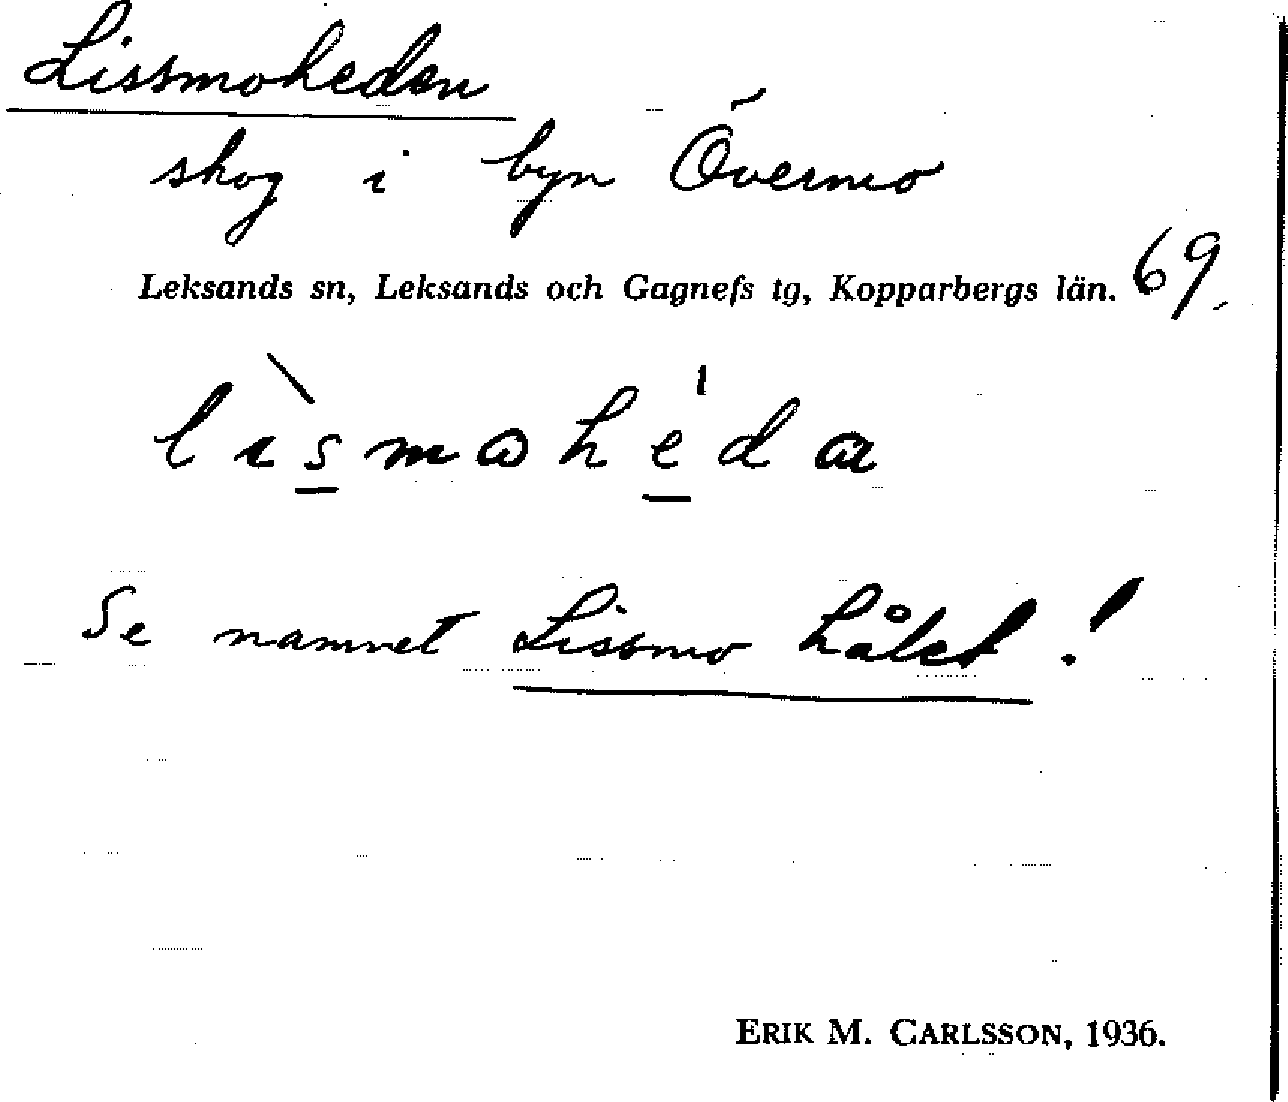 Lissmoheden
skog i byn Övermo
Leksands sn, Leksands och Gagnefs tg, Kopparbergs län. 69.
lìs̲mωhe̲̍da
Se namnet Lissmo hålet!
ERIK M. CARLSSON, 1936.